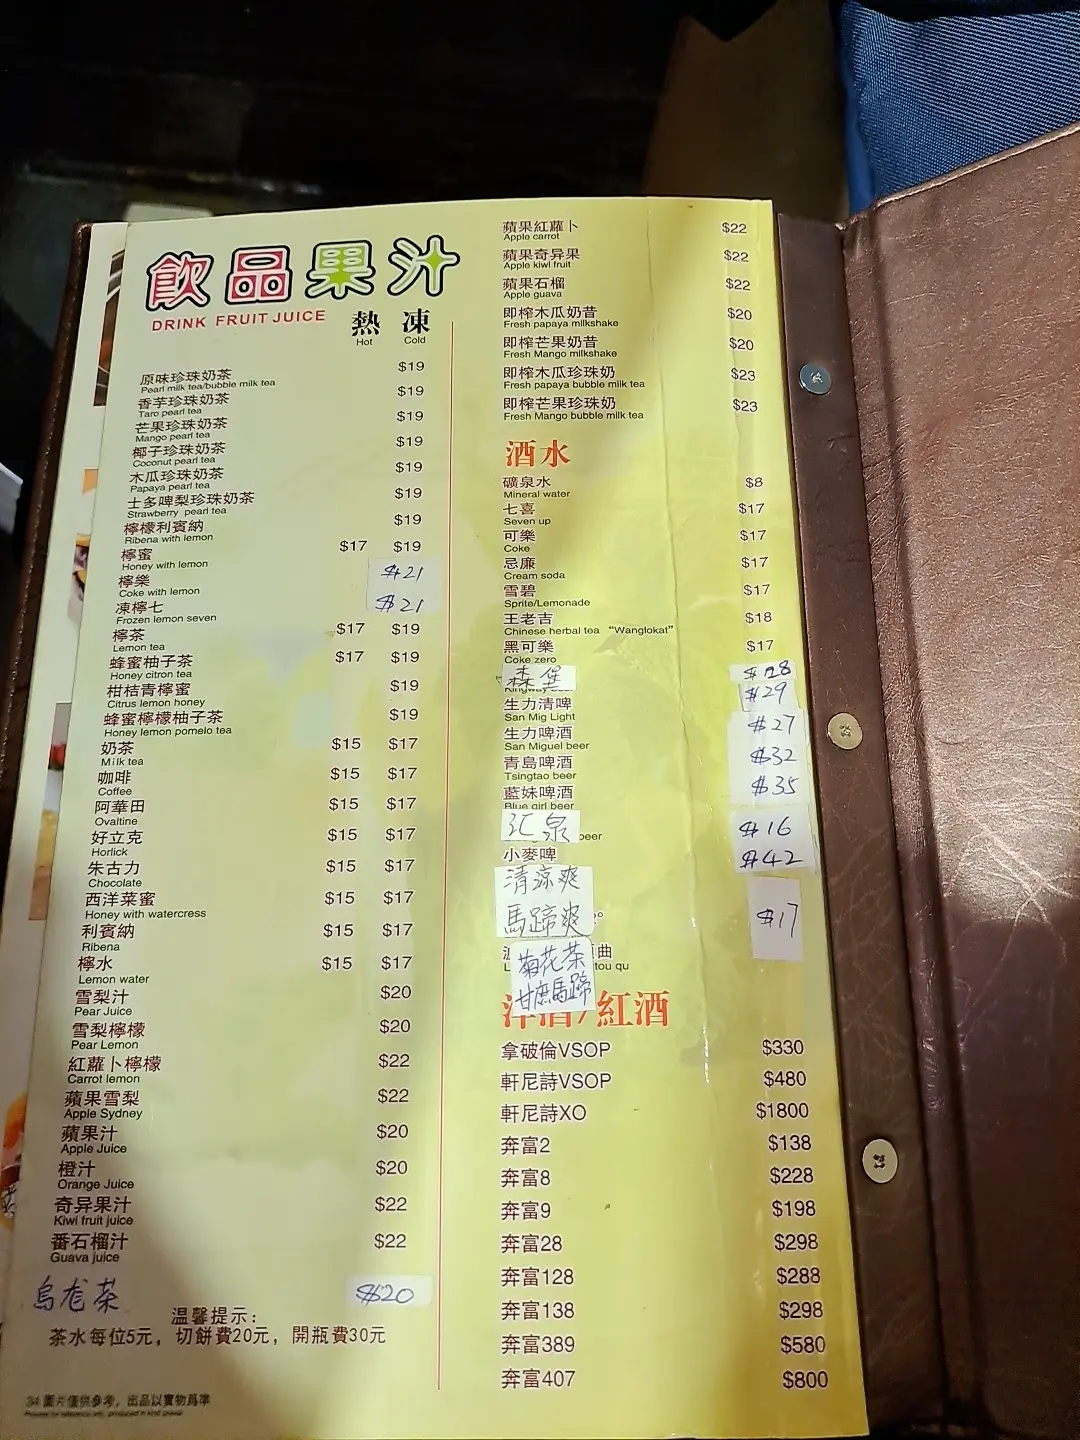 飲品果汁
DRINK FRUIT JUICE
熱 凍
Hot Cold
原味珍珠奶茶 $19
Pearl milk tea/bubble milk tea
香芋珍珠奶茶 $19
Taro pearl tea
芒果珍珠奶茶 $19
Mango pearl tea
椰子珍珠奶茶 $19
Coconut pearl tea
木瓜珍珠奶茶 $19
Papaya pearl tea
士多啤梨珍珠奶茶 $19
Strawberry pearl tea
檸檬利賓納 $19
Ribena with lemon
檸蜜 $17 $19
Honey with lemon
檸樂 $21
Coke with lemon
凍檸七 $21
Frozen lemon seven
檸茶 $17 $19
Lemon tea
蜂蜜柚子茶 $17 $19
Honey citron tea
柑桔青檸蜜 $19
Citrus lemon honey
蜂蜜檸檬柚子茶 $19
Honey lemon pomelo tea
奶茶 $15 $17
Milk tea
咖啡 $15 $17
Coffee
阿華田 $15 $17
Ovaltine
好立克 $15 $17
Horlick
朱古力 $15 $17
Chocolate
西洋菜蜜 $15 $17
Honey with watercress
利賓納 $15 $17
Ribena
檸水 $15 $17
Lemon water
雪梨汁 $20
Pear Juice
雪梨檸檬 $20
Pear Lemon
紅蘿卜檸檬 $22
Carrot lemon
蘋果雪梨 $22
Apple Sydney
蘋果汁 $20
Apple Juice
橙汁 $20
Orange Juice
奇异果汁 $22
Kiwi fruit juice
番石榴汁 $22
Guava juice
烏尨茶 $20
温馨提示：
茶水每位5元，切餅費20元，開瓶費30元
34 圖片僅供參考，出品以實物爲準
蘋果紅蘿卜 $22
Apple carrot
蘋果奇异果 $22
Apple kiwi fruit
蘋果石榴 $22
Apple guava
即榨木瓜奶昔 $20
Fresh papaya milkshake
即榨芒果奶昔 $20
Fresh Mango milkshake
即榨木瓜珍珠奶 $23
Fresh papaya bubble milk tea
即榨芒果珍珠奶 $23
Fresh Mango bubble milk tea
酒水
礦泉水 $8
Mineral water
七喜 $17
Seven up
可樂 $17
Coke
忌廉 $17
Cream soda
雪碧 $17
Sprite/Lemonade
王老吉 $18
Chinese herbal tea “Wanglokat”
黑可樂 $17
Coke zero
森堡 $28
Kingway beer
生力清啤 $29
San Mig Light
生力啤酒 $27
San Miguel beer
青島啤酒 $32
Tsingtao beer
藍妹啤酒 $35
Blue girl beer
汇泉 $16
beer
小麥啤 $42
清涼爽
馬蹄爽 $17
曲
菊花茶 tou qu
甘庶馬蹄
洋酒/紅酒
拿破倫VSOP $330
軒尼詩VSOP $480
軒尼詩XO $1800
奔富2 $138
奔富8 $228
奔富9 $198
奔富28 $298
奔富128 $288
奔富138 $298
奔富389 $580
奔富407 $800